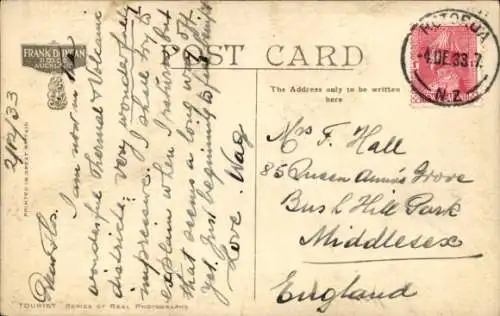 FRANK DUNCAN
& CO. LTD.
AUCKLAND
POST CARD
The Address only to be written
here
ROTORUA
4 DE 33
N.Z.
PRINTED IN GREAT BRITAIN
2/12/33
Dear Flo.
I am now in the
wonderful Thermal & Volcanic
districts. Very wonderful &
impressive. I shall try to
explain when I return but
that seems a long way off
yet. Just beginning to feel
Love. Wag
Mrs F. Hall
85 Queen Anne's Grove
Bush Hill Park
Middlesex
England
TOURIST SERIES OF REAL PHOTOGRAPHS